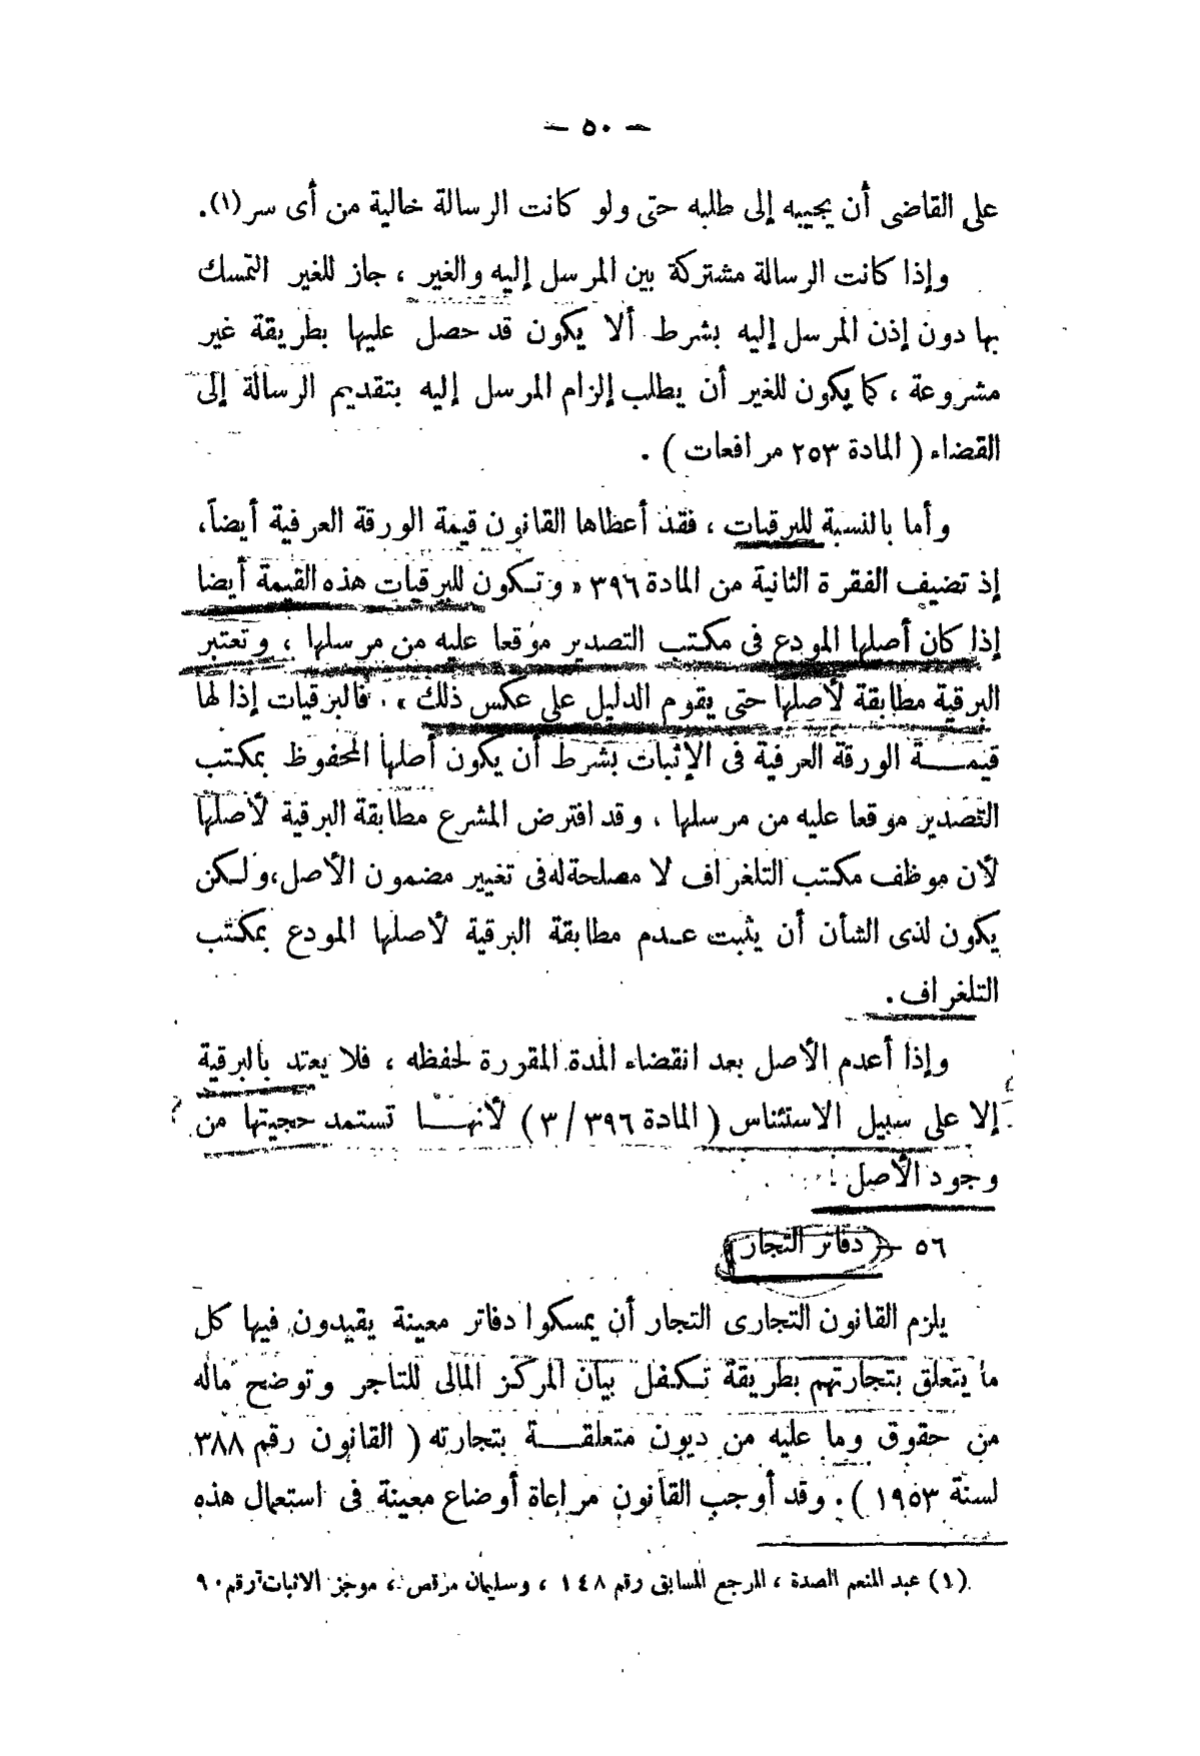 — ٥٠ —
على القاضى أن يجيبه إلى طلبه حتى ولو كانت الرسالة خالية من أى سر(١).
وإذا كانت الرسالة مشتركة بين المرسل إليه والغير ، جاز للغير التمسك
بها دون إذن المرسل إليه بشرط ألا يكون قد حصل عليها بطريقة غير
مشروعة ، كما يكون للغير أن يطلب إلزام المرسل إليه بتقديم الرسالة إلى
القضاء ( المادة ٢٥٣ مرافعات ) .
وأما بالنسبة للبرقيات ، فقد أعطاها القانون قيمة الورقة العرفية أيضاً،
إذ تضيف الفقرة الثانية من المادة ٣٩٦ « وتكون للبرقيات هذه القيمة أيضا
إذا كان أصلها المودع فى مكتب التصدير موقعا عليه من مرسلها ، وتعتبر
البرقية مطابقة لأصلها حتى يقوم الدليل على عكس ذلك » . فالبرقيات إذا لها
قيمــة الورقة العرفية فى الإثبات بشرط أن يكون أصلها المحفوظ بمكتب
التصدير موقعا عليه من مرسلها ، وقد افترض المشرع مطابقة البرقية لأصلها
لأن موظف مكتب التلغراف لا مصلحة له فى تغيير مضمون الأصل، ولكن
يكون لذى الشأن أن يثبت عـدم مطابقة البرقية لأصلها المودع بمكتب
التلغراف .
وإذا أعدم الأصل بعد انقضاء المدة المقررة لحفظه ، فلا يعتد بالبرقية
إلا على سبيل الاستئناس ( المادة ٣٩٦ / ٣ ) لأنهــا تستمد حجيتها من
وجود الأصل .
٥٦ — دفاتر التجار
يلزم القانون التجارى التجار أن يمسكوا دفاتر معينة يقيدون فيها كل
ما يتعلق بتجارتهم بطريقة تكفل بيان المركز المالى للتاجر وتوضح ماله
من حقوق وما عليه من ديون متعلقــة بتجارته ( القانون رقم ٣٨٨
لسنة ١٩٥٣ ) . وقد أوجب القانون مراعاة أوضاع معينة فى استعمال هذه
(١) عبد المنعم الصدة ، المرجع السابق رقم ١٤٨ ، وسليمان مرقص ، موجز الاثبات رقم ٩٠